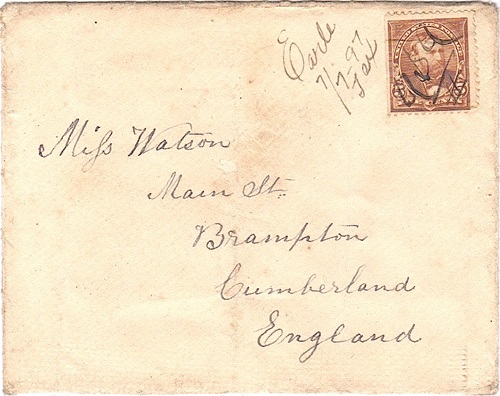 Earle
7/7 97
Tex
Miss Watson
Main St.
Brampton
Cumberland
England